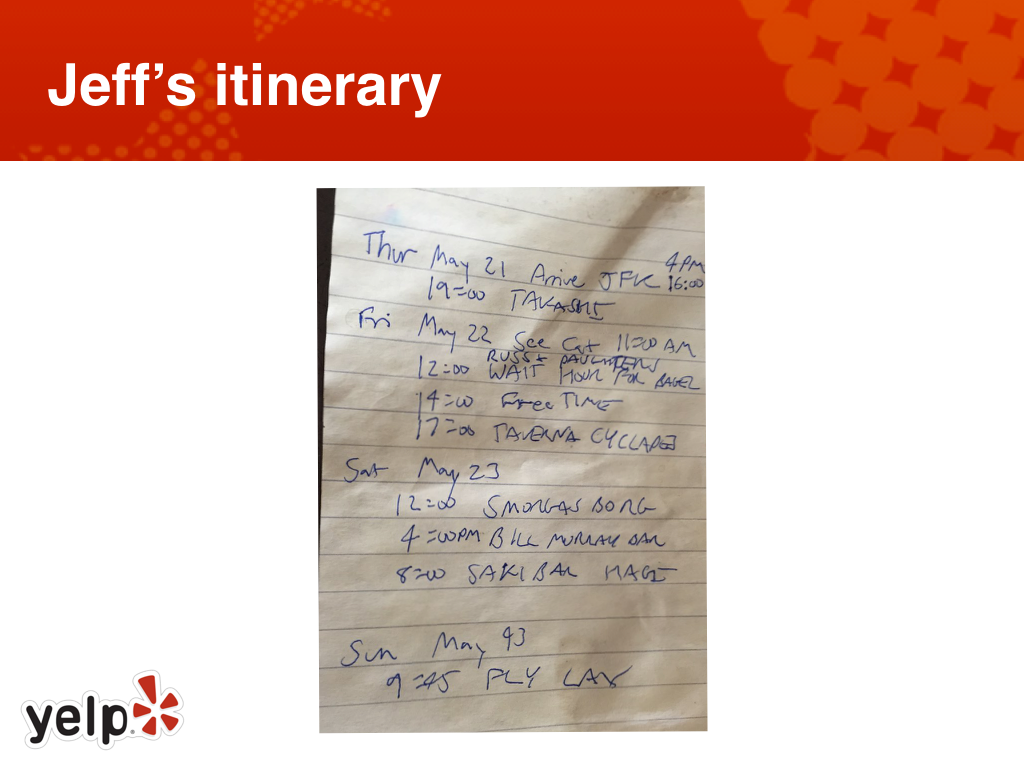 Jeff’s itinerary
Thur May 21 Arrive JFK 4PM
16:00
19:00 TAKASHI
Fri May 22 See Cat 11:00 AM
RUSS + DAUGHTERS
12:00 WAIT HOUR FOR BAGEL
14:00 Free TIME
17:00 TAVERNA CYCLADES
Sat May 23
12:00 SMORGAS BORG
4:00PM BILL MURRAY BAR
8:00 SAKI BAR HAGI
Sun May 93
9:45 FLY LAX
yelp